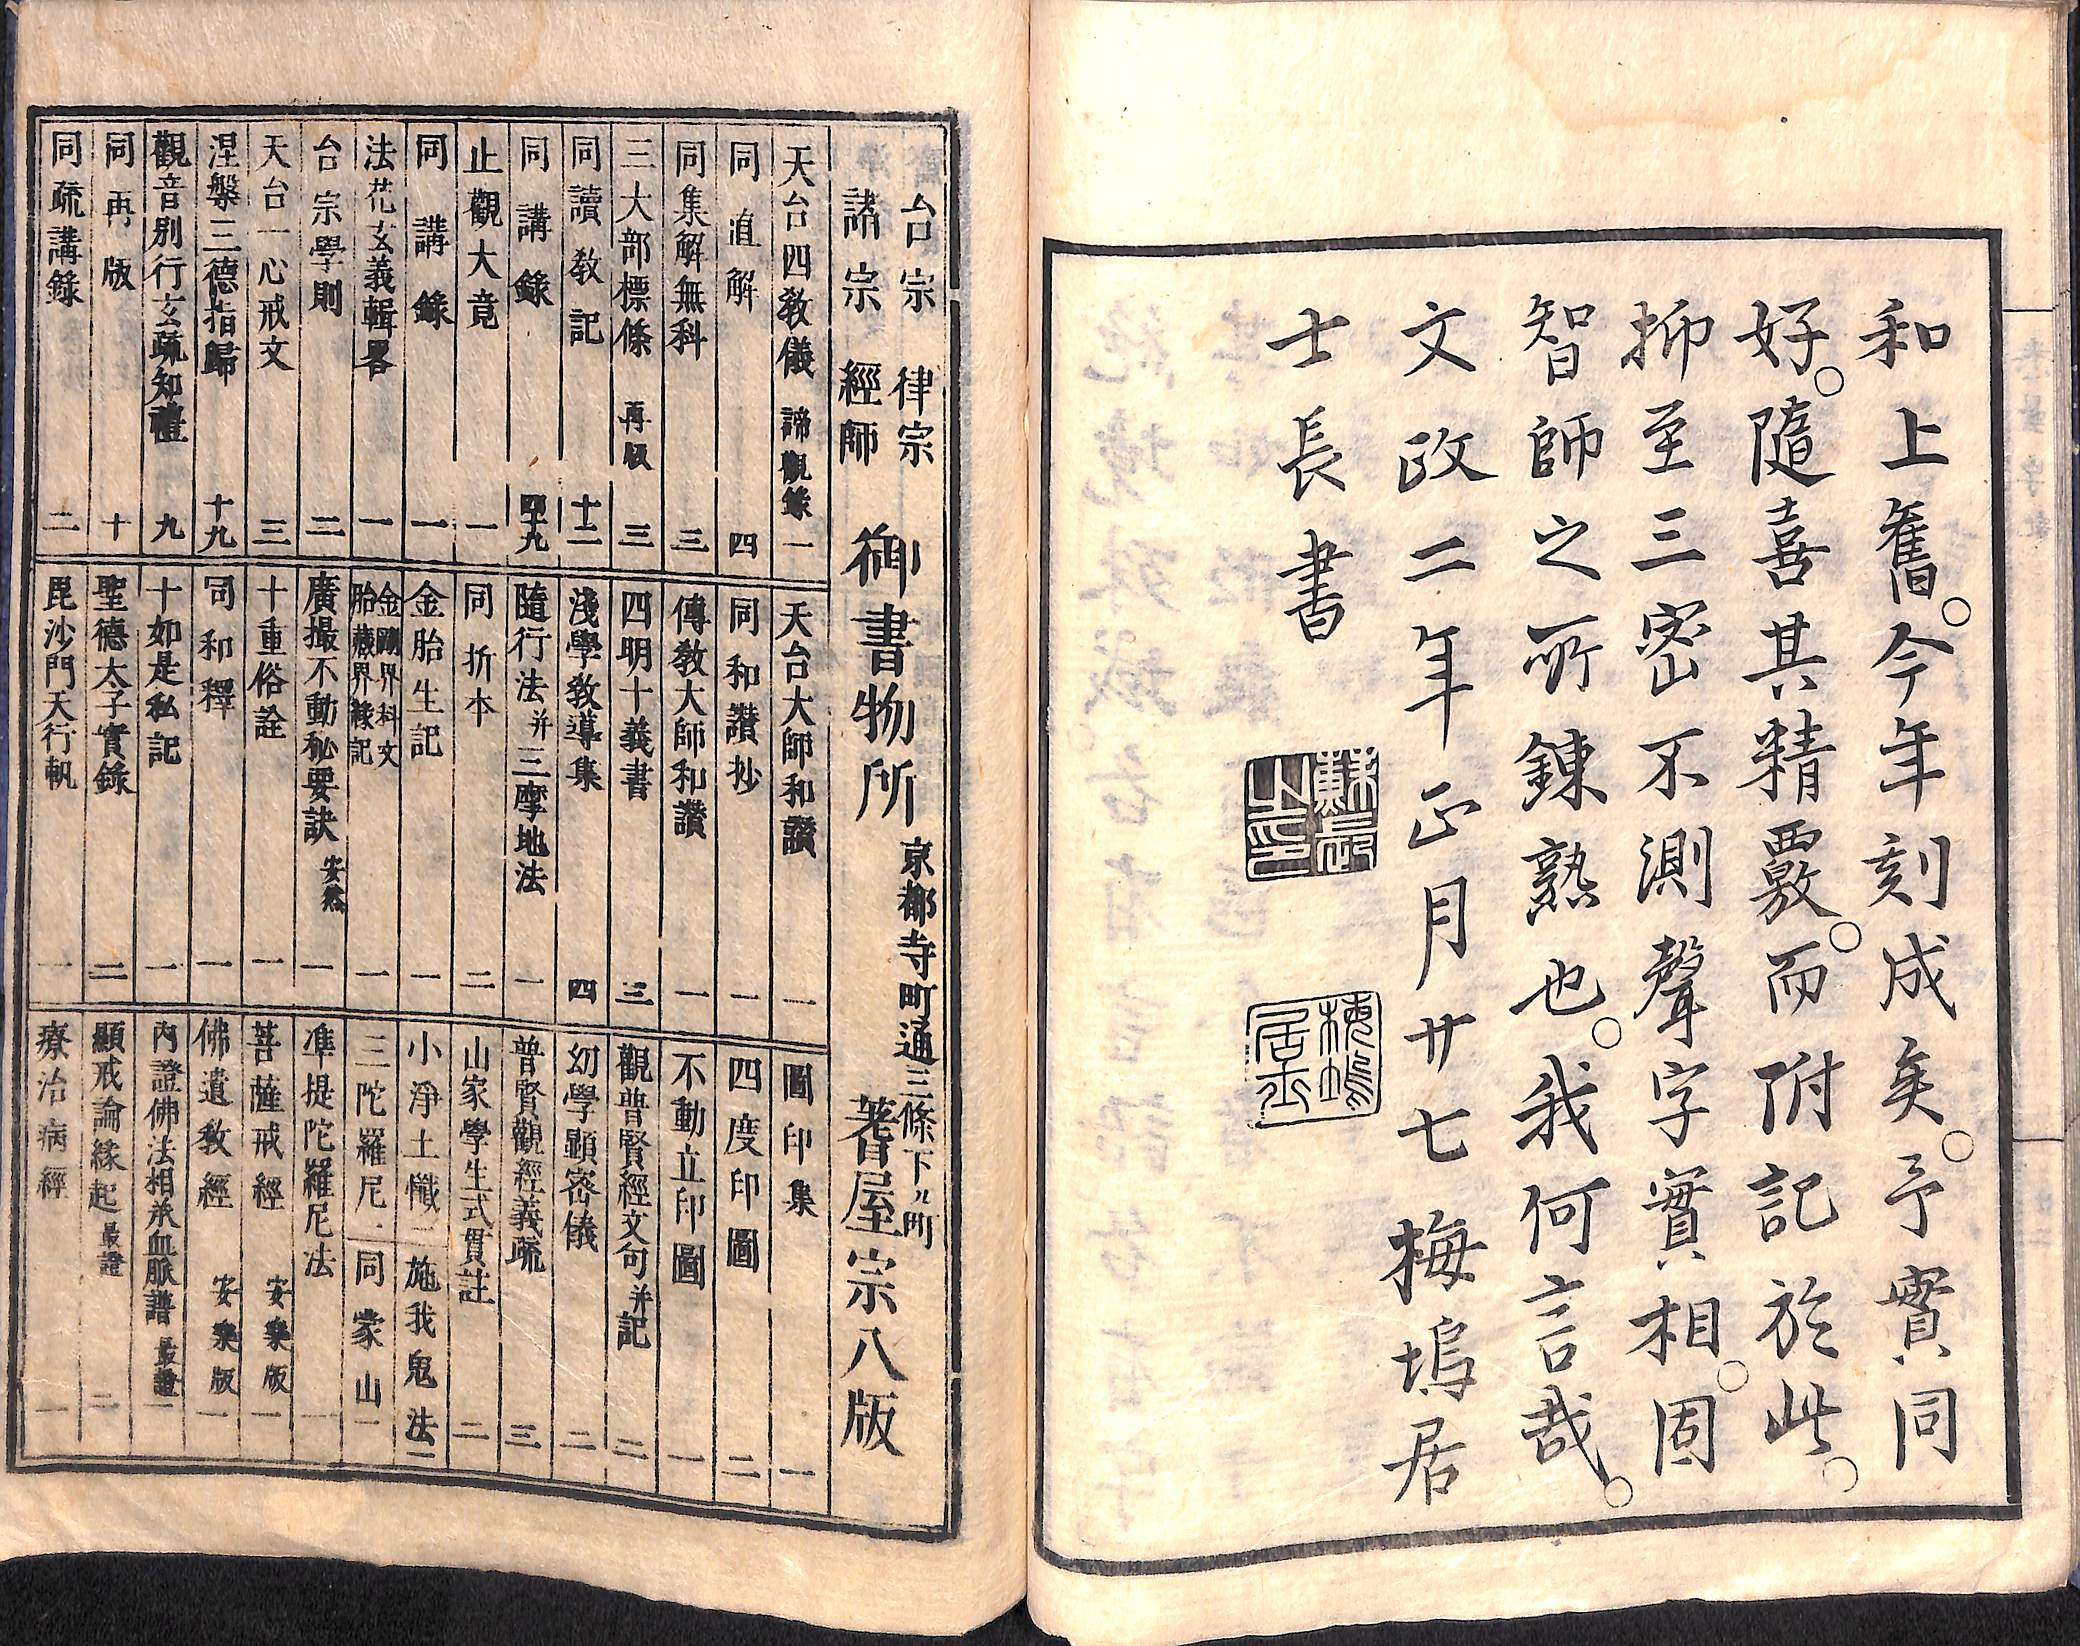 和上舊。今年刻成矣。予實同
好。隨喜其精覈。而附記於此。
抑至三密不測聲字實相。固
智師之所鍊熟也。我何言哉。
文政二年正月廿七梅塢居
士長書
台宗 律宗
諸宗 經師
御書物所
京都寺町通三條下ル町
著屋宗八版
天台四教儀 諦觀錄 一
同直解 四
同集解無科 三
三大部標條 再版 三
同讀教記 十二
同講錄 四十九
止觀大意 一
同講錄 一
法花玄義輯畧 一
台宗學則 二
天台一心戒文 三
涅槃三德指歸 十九
觀音別行玄疏知禮 九
同再版 十
同疏講錄 二
天台大師和讚 一
同和讚抄 一
傳教大師和讚 一
四明十義書 三
淺學教導集 四
隨行法并三摩地法 一
同折本 二
金胎生記 一
金剛界科文
胎藏界祿記 一
廣撮不動秘要訣 安然 一
十重俗詮 一
同和釋 一
十如是私記 一
聖德太子實錄 二
毘沙門天行軌 一
圖印集 一
四度印圖 二
不動立印圖 一
觀普賢經文句并記 二
幼學顯密儀 二
普賢觀經義疏 三
山家學生式貫註 二
小淨土懺二施我鬼法二
三陀羅尼一同蒙山一
準提陀羅尼法 一
菩薩戒經 安樂版 一
佛遺教經 安樂版 一
內證佛法相承血脈譜 最證 一
顯戒論緣起 最證 二
療治病經 一